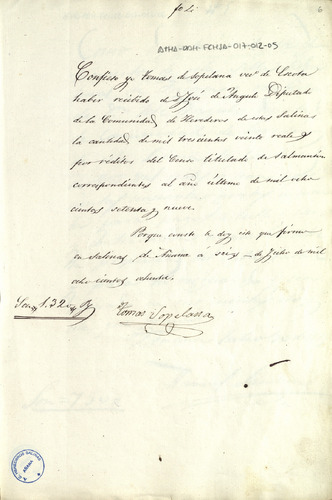 fo 2
6
ATHA-DAH-FCHSA-017-012-05
Confieso yo Tomas de Sopelana vecº. de Escota
haber recibido de D. José de Angulo Diputado
de la Comunidad de Herederos de estas Salinas
la cantidad de mil trescientos veinte reales
por réditos del Censo titulado de Salmanton
correspondientes al año último de mil ocho
cientos setenta y nueve.
Porque conste le doy este que firmo
en Salinas de Añana á seis de Julio de mil
ocho cientos ochenta.
Son 1.320
Tomas Sopelana
COMUNIDAD SALINAS
AÑANA